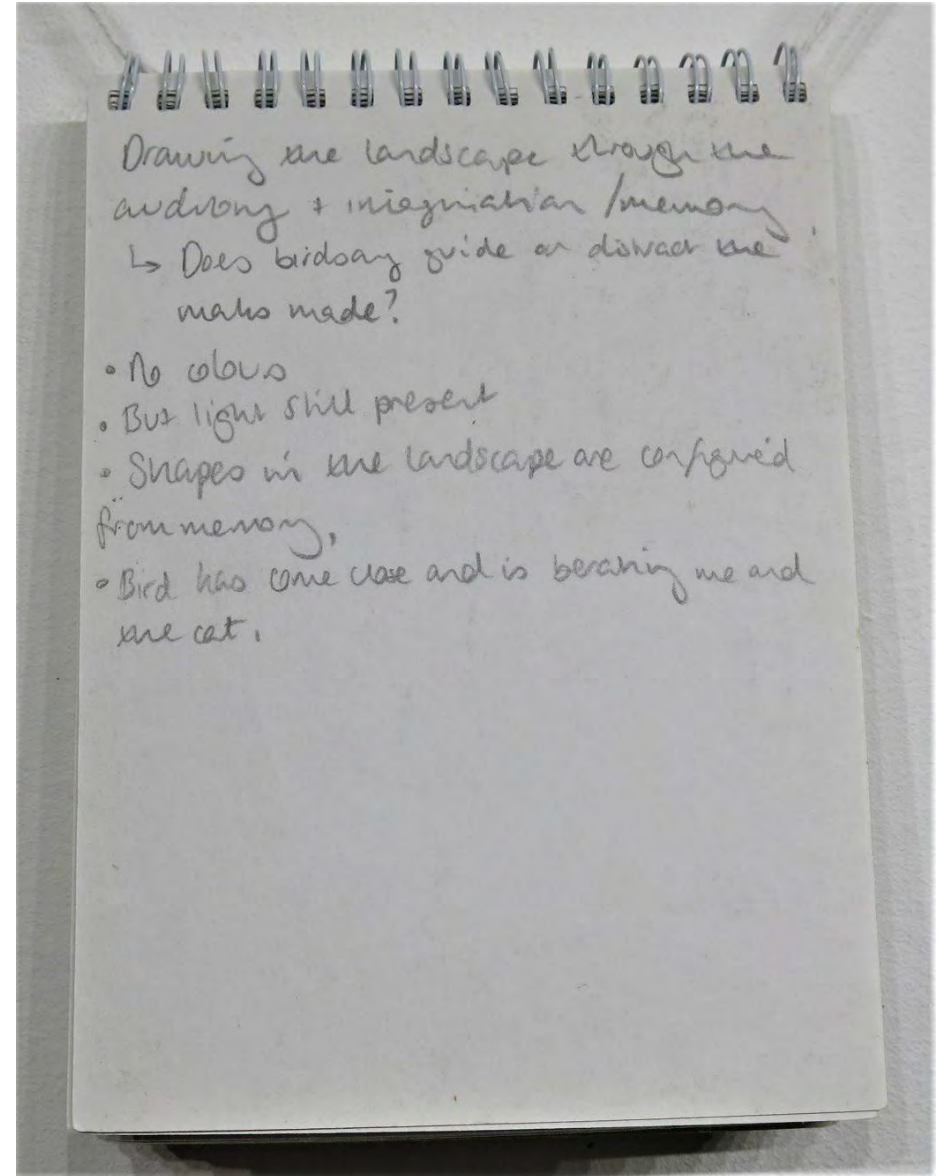 Drawing the landscape through the
auditory + imagination / memory
↳ Does birdsong guide or distract the
marks made?
• No colours
• But light still present
• Shapes in the landscape are configured
from memory.
• Bird has come close and is berating me and
the cat.